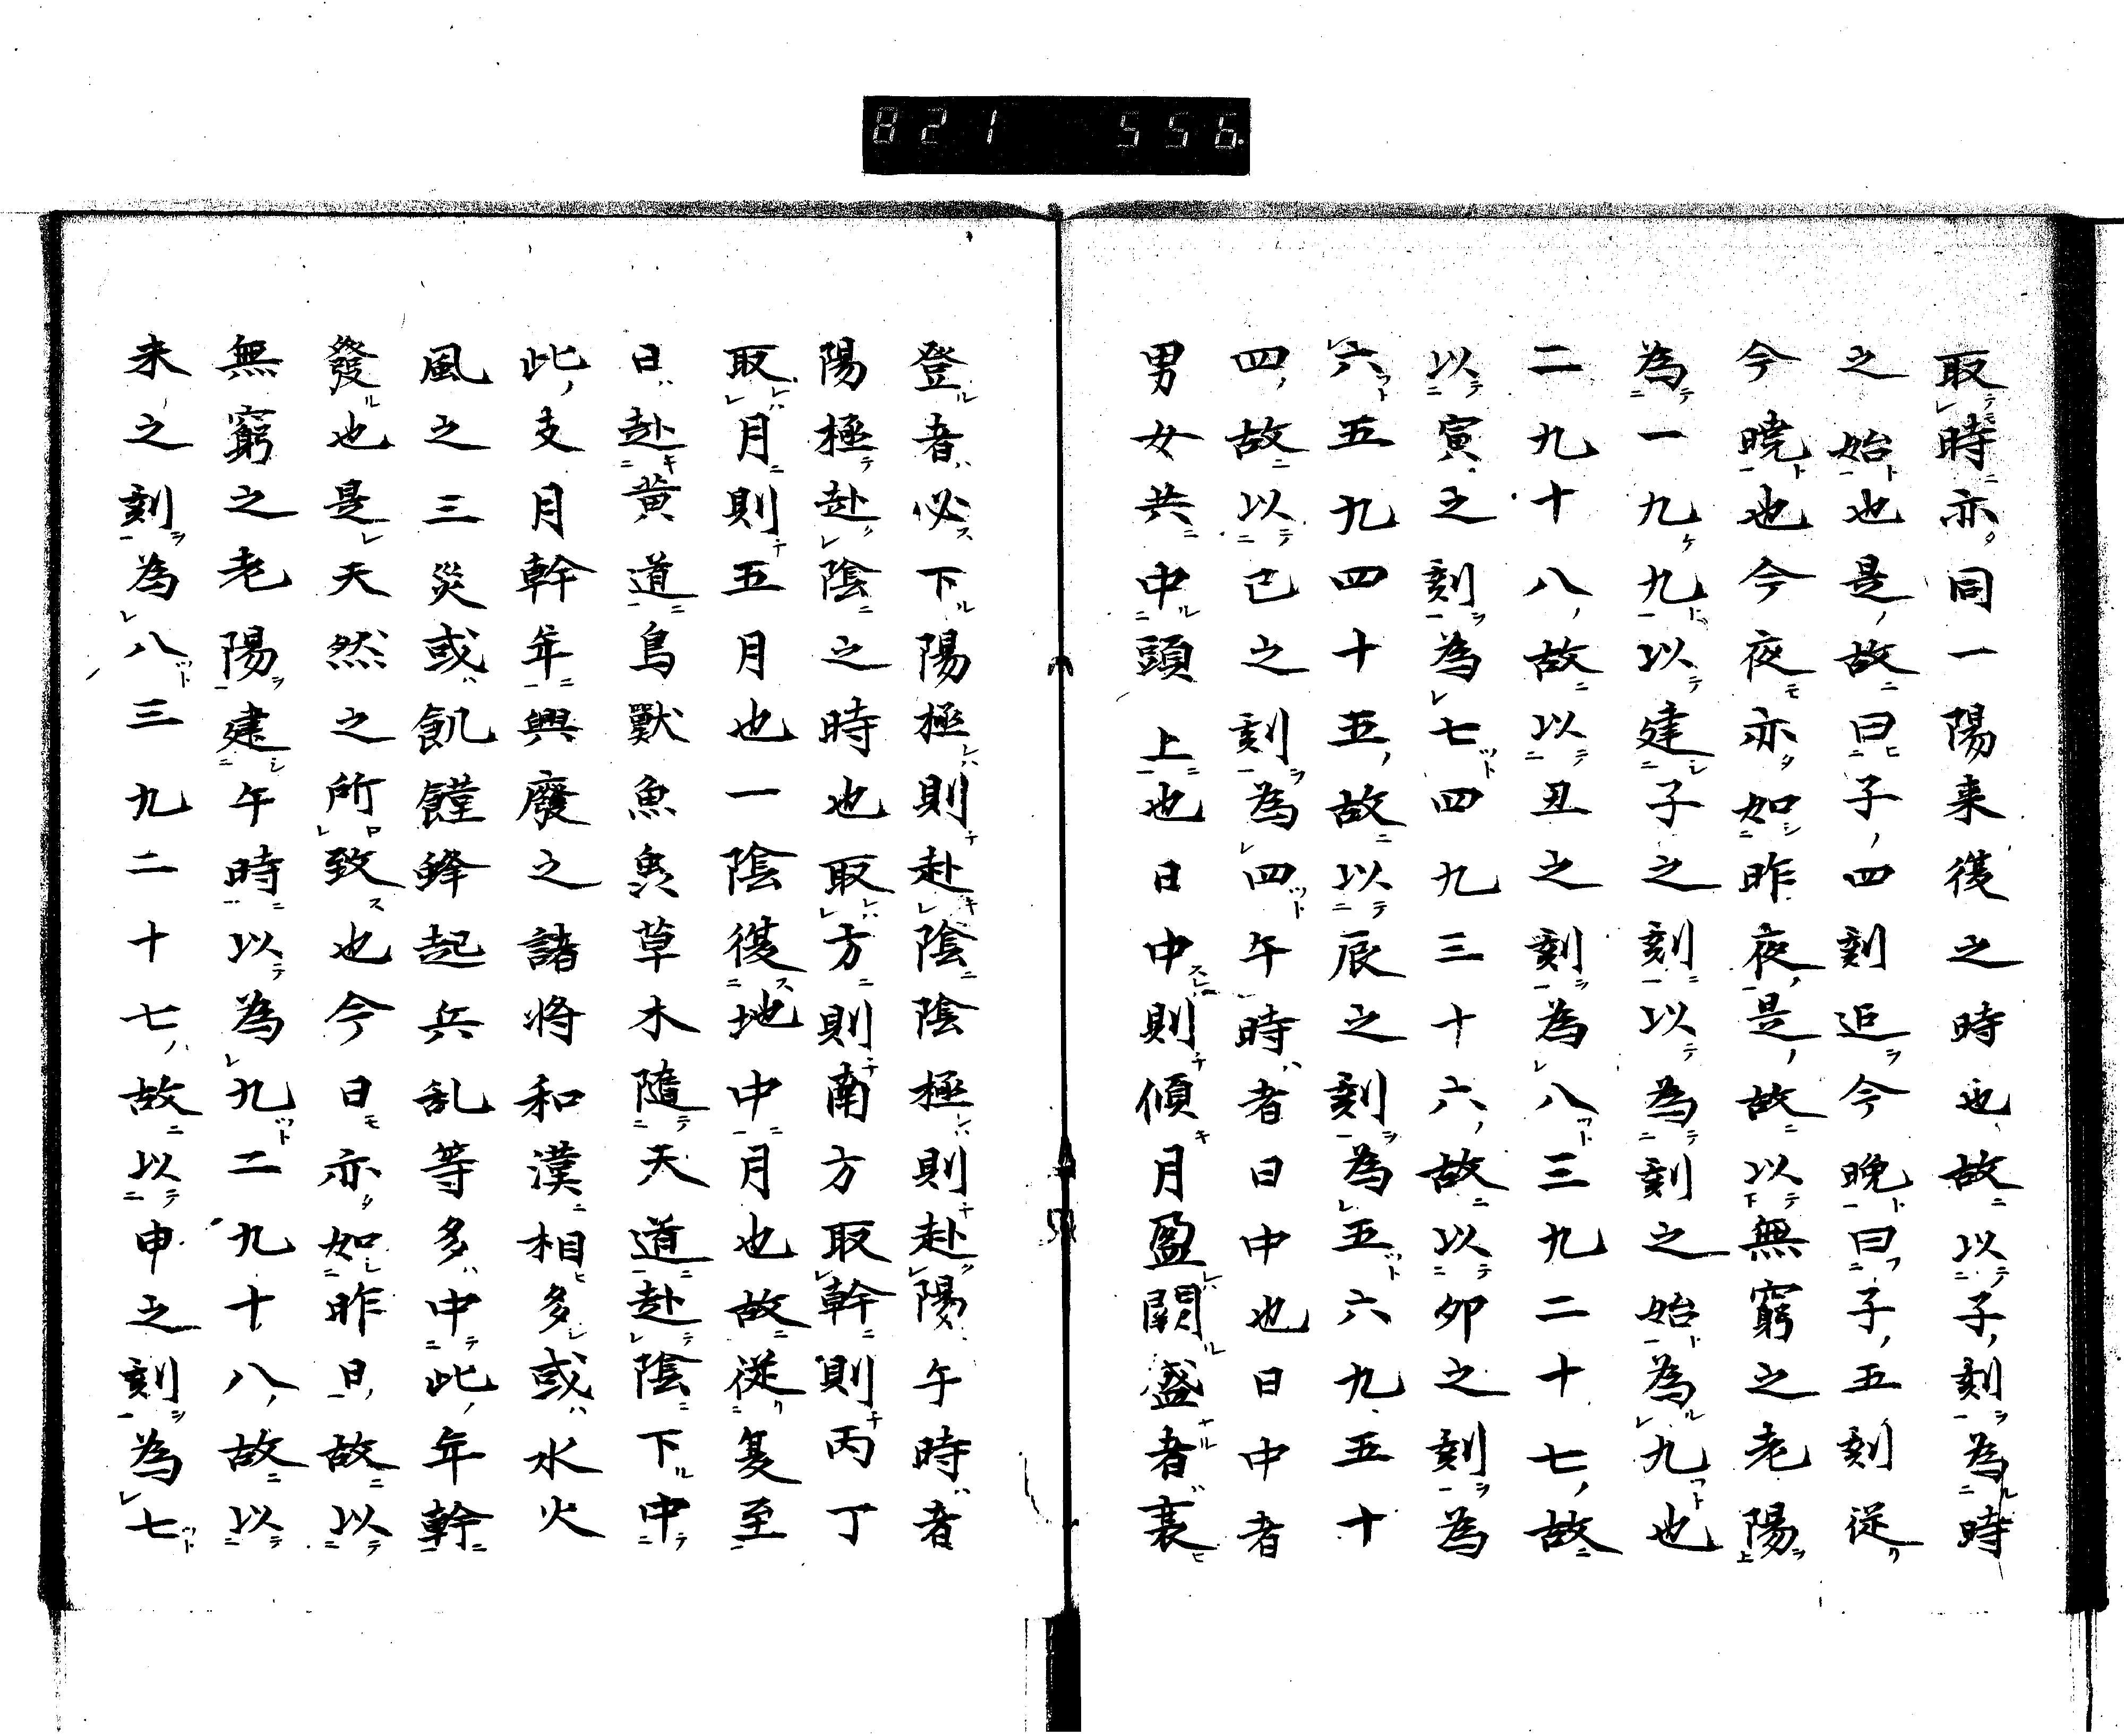 821 556
取時亦同一陽来復之時也故以子刻為時
之始也是故曰子四刻迠今晩曰子五刻従
今暁也今夜亦如昨夜是故以無窮之老陽
為一九九以建子之刻以為刻之始為九也
二九十八故以丑之刻為八三九二十七故
以寅之刻為七四九三十六故以卯之刻為
六五九四十五故以辰之刻為五六九五十
四故以巳之刻為四午時者日中也日中者
男女共中頭上也日中則傾月盈闕盛者衰
登者必下陽極則赴陰陰極則赴陽午時者
陽極赴陰之時也取方則南方取幹則丙丁
取月則五月也一陰復地中月也故従夏至
日赴黄道鳥獣魚鱼草木隨天道赴陰下中
此支月幹年興廢之諸将和漢相多或水火
風之三災或飢饉蜂起兵乱等多中此年幹
發也是天然之所致也今日亦如昨日故以
無窮之老陽建午時以為九二九十八故以
未之刻為八三九二十七故以申之刻為七